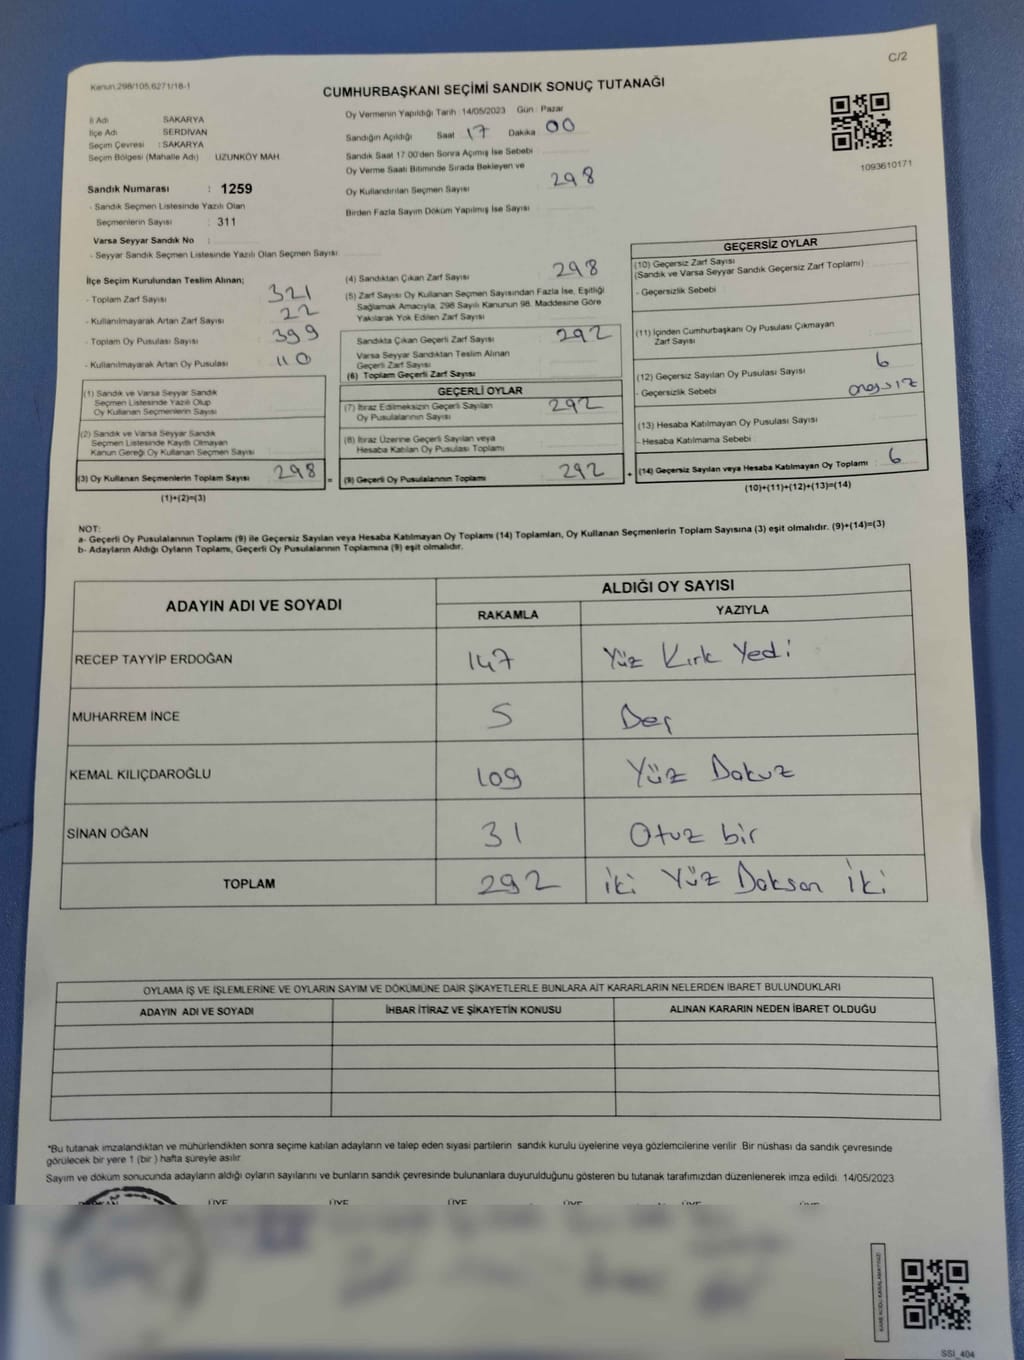 C/2
Kanun:298/105,6271/18-1
CUMHURBAŞKANI SEÇİMİ SANDIK SONUÇ TUTANAĞI
İl Adı SAKARYA
İlçe Adı SERDİVAN
Seçim Çevresi : SAKARYA
Seçim Bölgesi (Mahalle Adı) UZUNKÖY MAH.
Sandık Numarası : 1259
- Sandık Seçmen Listesinde Yazılı Olan
Seçmenlerin Sayısı : 311
Varsa Seyyar Sandık No :
- Seyyar Sandık Seçmen Listesinde Yazılı Olan Seçmen Sayısı:
Oy Vermenin Yapıldığı Tarih : 14/05/2023 Gün : Pazar
Sandığın Açıldığı Saat 17 Dakika 00
Sandık Saat 17:00'den Sonra Açımış İse Sebebi :
Oy Verme Saati Bitiminde Sırada Bekleyen ve
Oy Kullandırılan Seçmen Sayısı : 298
Birden Fazla Sayım Döküm Yapılmış İse Sayısı :
1093610171
İlçe Seçim Kurulundan Teslim Alınan;
- Toplam Zarf Sayısı : 321
- Kullanılmayarak Artan Zarf Sayısı : 22
- Toplam Oy Pusulası Sayısı : 399
- Kullanılmayarak Artan Oy Pusulası : 110
(1) Sandık ve Varsa Seyyar Sandık
Seçmen Listesinde Yazılı Olup
Oy Kullanan Seçmenlerin Sayısı :
(2) Sandık ve Varsa Seyyar Sandık
Seçmen Listesinde Kayıtlı Olmayan
Kanun Gereği Oy Kullanan Seçmen Sayısı :
(3) Oy Kullanan Seçmenlerin Toplam Sayısı : 298 =
(1)+(2)=(3)
(4) Sandıktan Çıkan Zarf Sayısı : 298
(5) Zarf Sayısı Oy Kullanan Seçmen Sayısından Fazla İse, Eşitliği
Sağlamak Amacıyla, 298 Sayılı Kanunun 98. Maddesine Göre
Yakılarak Yok Edilen Zarf Sayısı :
Sandıkta Çıkan Geçerli Zarf Sayısı : 292
Varsa Seyyar Sandıktan Teslim Alınan
Geçerli Zarf Sayısı :
(6) Toplam Geçerli Zarf Sayısı :
GEÇERLİ OYLAR
(7) İtiraz Edilmeksizin Geçerli Sayılan
Oy Pusulalarının Sayısı : 292
(8) İtiraz Üzerine Geçerli Sayılan veya
Hesaba Katılan Oy Pusulası Toplamı :
(9) Geçerli Oy Pusulalarının Toplamı : 292 +
GEÇERSİZ OYLAR
(10) Geçersiz Zarf Sayısı
(Sandık ve Varsa Seyyar Sandık Geçersiz Zarf Toplamı) :
- Geçersizlik Sebebi :
(11) İçinden Cumhurbaşkanı Oy Pusulası Çıkmayan
Zarf Sayısı :
(12) Geçersiz Sayılan Oy Pusulası Sayısı : 6
- Geçersizlik Sebebi :
(13) Hesaba Katılmayan Oy Pusulası Sayısı :
- Hesaba Katılmama Sebebi :
(14) Geçersiz Sayılan veya Hesaba Katılmayan Oy Toplamı : 6
(10)+(11)+(12)+(13)=(14)
NOT:
a- Geçerli Oy Pusulalarının Toplamı (9) ile Geçersiz Sayılan veya Hesaba Katılmayan Oy Toplamı (14) Toplamları, Oy Kullanan Seçmenlerin Toplam Sayısına (3) eşit olmalıdır. (9)+(14)=(3)
b- Adayların Aldığı Oyların Toplamı, Geçerli Oy Pusulalarının Toplamına (9) eşit olmalıdır.
ADAYIN ADI VE SOYADI
ALDIĞI OY SAYISI
RAKAMLA YAZIYLA
RECEP TAYYİP ERDOĞAN 147 Yüz Kırk Yedi
MUHARREM İNCE 5 Beş
KEMAL KILIÇDAROĞLU 109 Yüz Dokuz
SİNAN OĞAN 31 Otuz bir
TOPLAM 292 İki Yüz Doksan İki
OYLAMA İŞ VE İŞLEMLERİNE VE OYLARIN SAYIM VE DÖKÜMÜNE DAİR ŞİKAYETLERLE BUNLARA AİT KARARLARIN NELERDEN İBARET BULUNDUKLARI
ADAYIN ADI VE SOYADI İHBAR İTİRAZ VE ŞİKAYETİN KONUSU ALINAN KARARIN NEDEN İBARET OLDUĞU
*Bu tutanak imzalandıktan ve mühürlendikten sonra seçime katılan adayların ve talep eden siyasi partilerin sandık kurulu üyelerine veya gözlemcilerine verilir. Bir nüshası da sandık çevresinde
görülecek bir yere 1 (bir ) hafta süreyle asılır.
Sayım ve döküm sonucunda adayların aldığı oyların sayılarını ve bunların sandık çevresinde bulunanlara duyurulduğunu gösteren bu tutanak tarafımızdan düzenlenerek imza edildi. 14/05/2023
ÜYE ÜYE ÜYE ÜYE ÜYE ÜYE
KARE KODU KARALAMAYINIZ!
SSI_404